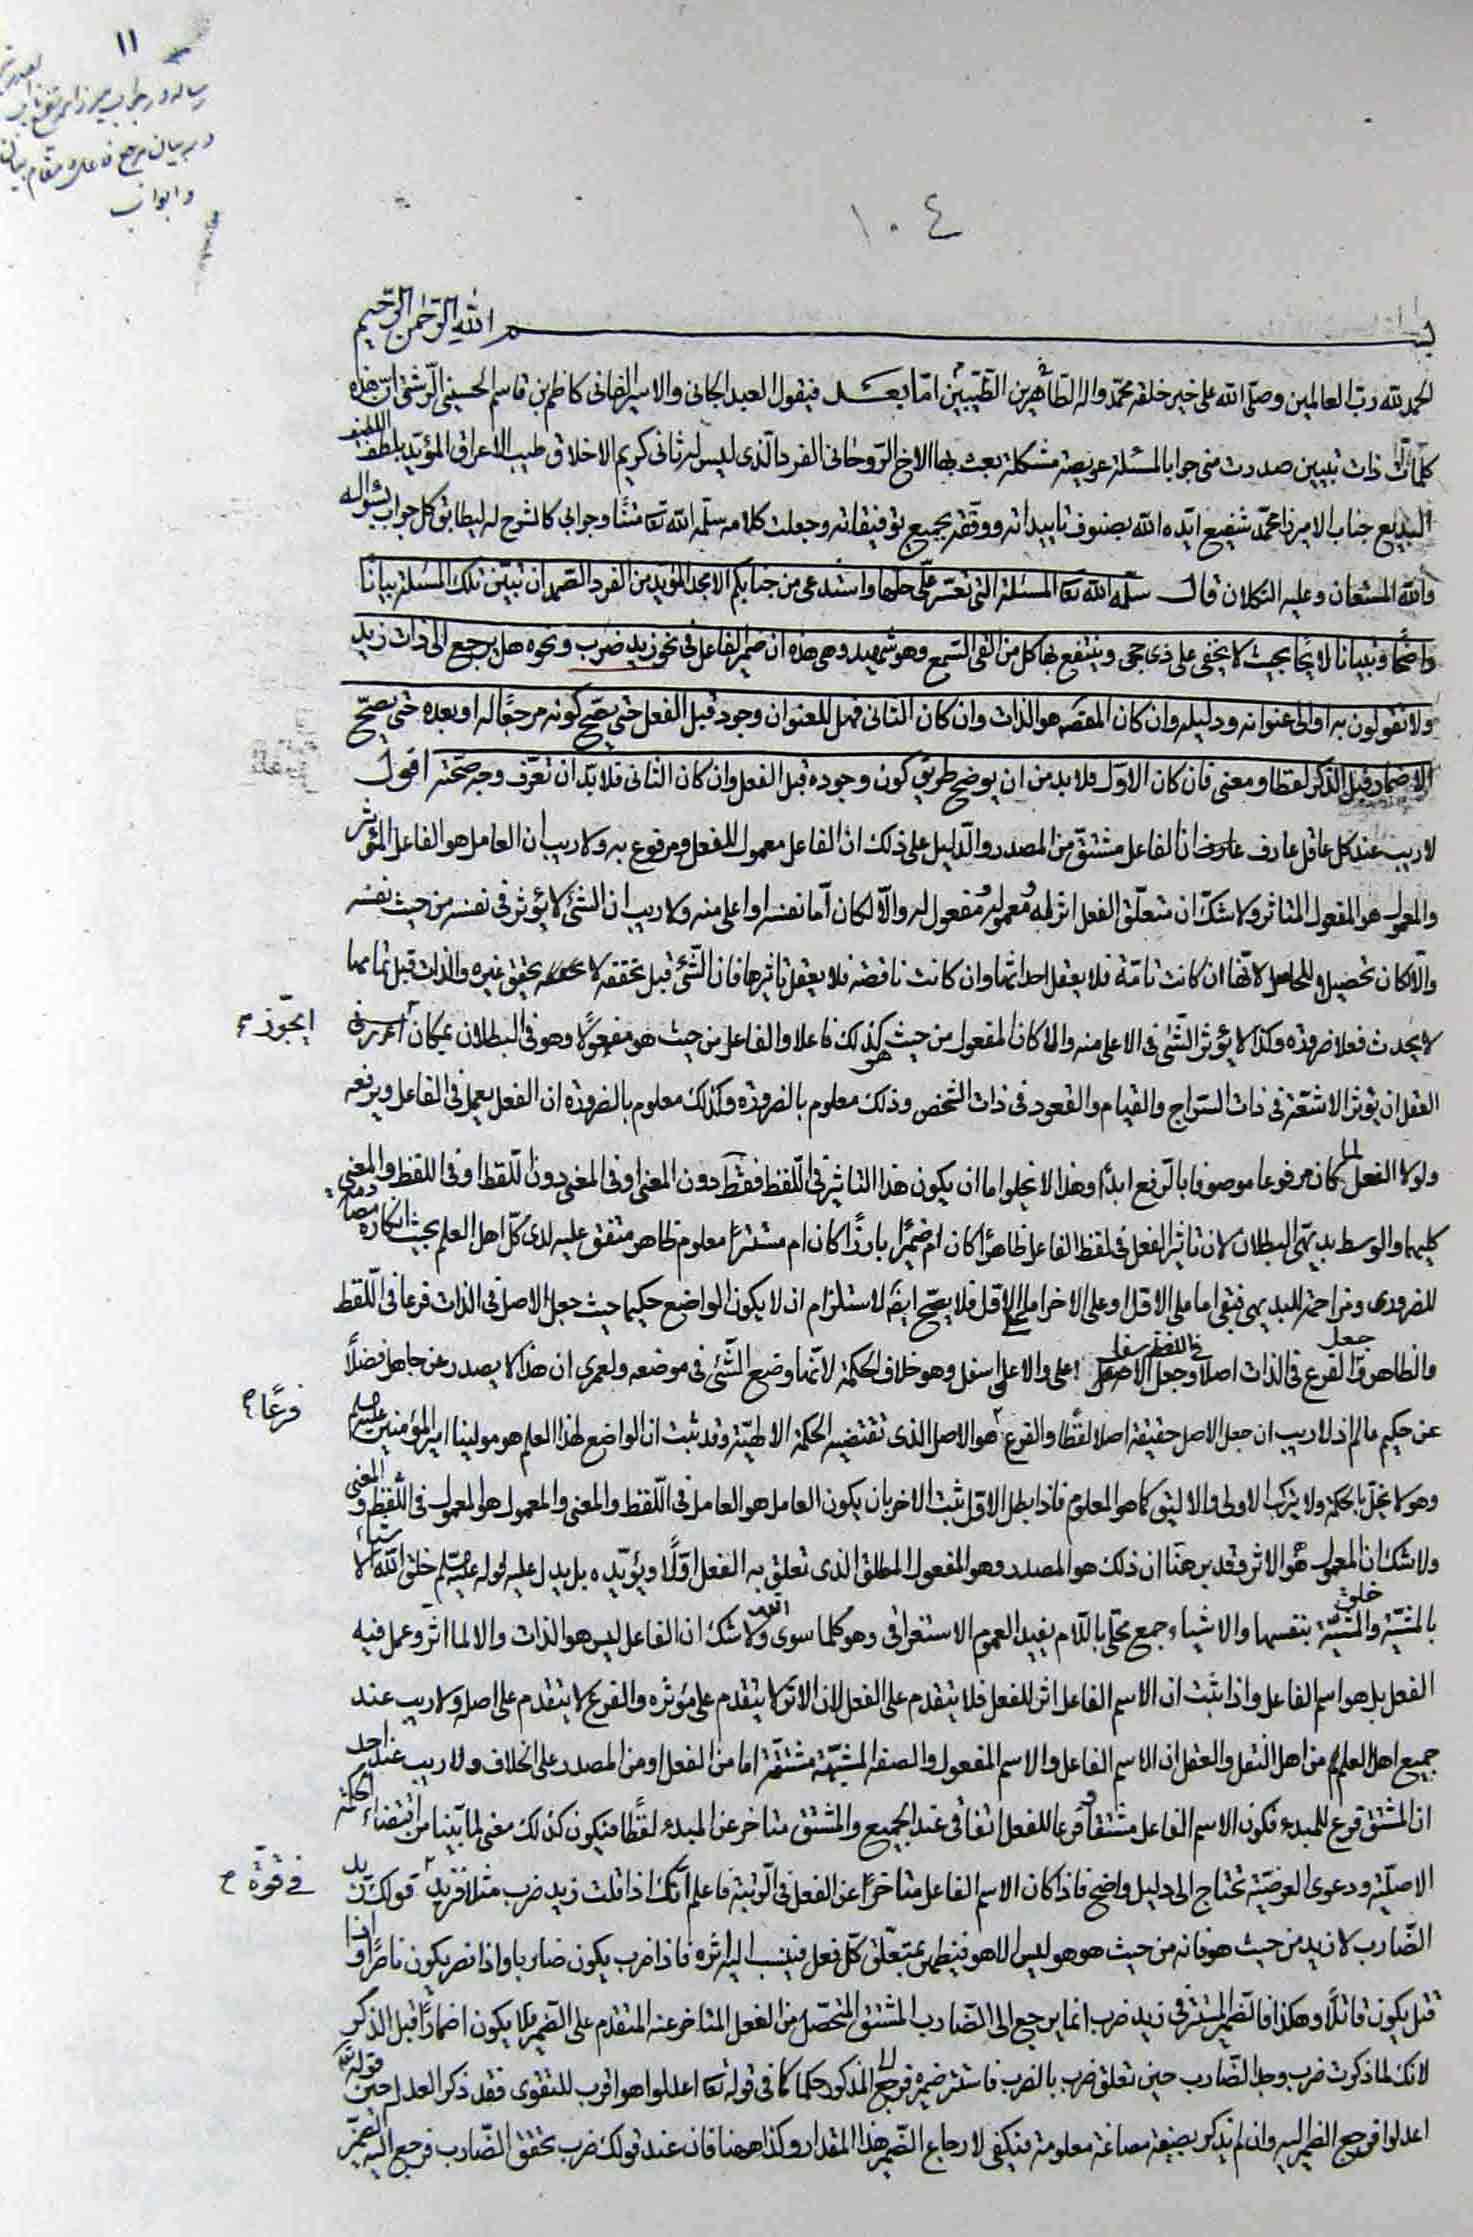 ١١
رساله در جواب میرزا محمد شفیع
در بیان مرجع فاعل در مقام بیان
و ابواب
١٠٤
بسم الله الرحمن الرحيم
الحمد لله رب العالمين وصلى الله على خير خلقه محمد واله الطاهرين الطيبين اما بعد فيقول العبد الجانى والاسير الفانى كاظم بن قاسم الحسينى الرشتى ان هذه
كلمات ذات تبيين صدرت منى جوابا لمسئلة عويصة مشكلة بعث بها الاخ الروحانى الفرد الذى ليس له ثانى كريم الاخلاق طيب الاعراق المؤيد بلطف اللطيف
البديع جناب الاميرزا محمد شفيع ايده الله بصنوف تاييداته ووفقه بجميع توفيقاته وجعلت كلامه سلمه الله تعا متنا وجوابى كالشرح له ليطابق كل جواب بسؤاله
والله المستعان وعليه التكلان قال سلمه الله تعا المسئلة التى تعسر على حلها واستدعى من جنابكم الامجد المؤيد من الفرد الصمد ان تبين تلك المسئلة بيانا
واضحا وتبيانا لايحا بحيث لا يخفى على ذى حجى وينتفع بها كل من القى السمع وهو شهيد وهى هذه ان ضمير الفاعل فى نحو زيد ضرب ونحوه هل يرجع الى ذات زيد
ولا تقولون به او الى عنوانه ودليله وان كان المقصد هو الذات وان كان الثانى فهل للعنوان وجود قبل الفعل حتى يصح كونه مرجعا له او بعده حتى يصح
الاضمار قبل الذكر لفظا ومعنى فان كان الاول فلا بد من ان يوضح طريق كون وجوده قبل الفعل وان كان الثانى فلا بد ان تعرف وجه صحته اقول
لا ريب عند كل عاقل عارف ان الفاعل مشتق من المصدر والدليل على ذلك ان الفاعل معمول للفعل ومرفوع به ولا ريب ان العامل هو الفاعل المؤثر
والمعمول هو المفعول المتاثر ولا شك ان متعلق الفعل اثر له ومعموله ومفعول له والا لكان اما نفسه او اعلى منه ولا ريب ان الشئ لا يؤثر فى نفسه من حيث نفسه
والا لكان تحصيل الحاصل لانها ان كانت تامة فلا يعقل احداثها وان كانت ناقصة فلا يعقل تاثيرها فان الشئ قبل تحققه لا يحقق غيره والذات قبل تمامها
لا يحدث فعلا ضرورة وكذا لا يؤثر الشئ فى الاعلى منه والا لكان المفعول من حيث هو كذلك فاعلا والفاعل من حيث هو مفعولا وهو فى البطلان بمكان
ايجوز
العقل ان يؤثر الاشعة فى ذات السراج والقيام والقعود فى ذات الشخص وذلك معلوم بالضرورة وكذلك معلوم بالضرورة ان الفعل يعمل فى الفاعل ويرفعه
ولولا الفعل لما كان مرفوعا موصوفا بالرفع ابدا وهذا لا يخلوا اما ان يكون هذا التاثير فى اللفظ فقط دون المعنى او فى المعنى دون اللفظ او فى اللفظ والمعنى
كليهما والوسط بديهى البطلان لان تاثير الفعل فى لفظ الفاعل ظاهرا كان ام ضميرا بارزا كان ام مستترا معلوم ظاهر متفق عليه لدى كل اهل العلم بحيث انكاره
للضرورى ومزاحمة للبديهى فبقى اما على الاول او على الاخر اما على الاول فلا يصح ايضا لاستلزام ان لا يكون الواضع حكيما حيث جعل الاصل فى الذات فرعا فى اللفظ
والظاهر وجعل الفرع فى الذات اصلا فى اللفظ وجعل الاسفل اعلى والاعلى اسفل وهو خلاف الحكمة لانها وضع الشئ فى موضعه ولعمرى ان هذا لا يصدر عن جاهل فضلا
عن حكيم عالم اذ لا ريب ان جعل الاصل حقيقة اصلا لفظا والفرع هو الاصل الذى تقتضيه الحكمة الالهية وقد ثبت ان الواضع لهذا العلم هو مولينا امير المؤمنين عليه السلم
فرعا
وهو لا يخل بالحكمة ولا يترك الاولى والاليق كما هو المعلوم فاذا بطل الاول ثبت الاخر بان يكون العامل هو العامل فى اللفظ والمعنى والمعمول هو المعمول فى اللفظ والمعنى
ولا شك ان المعمول هو الاثر وقد برهنا ان ذلك هو المصدر وهو المفعول المطلق الذى تعلق به الفعل اولا ويؤيده بل يدل عليه قوله عليه السلم خلق الله الاشياء
بالمشية وخلق المشية بنفسها والاشياء جمع محلى باللام يفيد العموم الاستغراقى وهو كلما سوى الله ولا شك ان الفاعل ليس هو الذات والا لما اثر وعمل فيه
الفعل بل هو اسم الفاعل واذا ثبت ان الاسم الفاعل اثر للفعل فلا يتقدم على الفعل لان الاثر لا يتقدم على مؤثره والفرع لا يتقدم على اصله ولا ريب عند
جميع اهل العلم من اهل النقل والعقل ان الاسم الفاعل والاسم المفعول والصفه المشبهة مشتقة اما من الفعل او من المصدر على الخلاف ولا ريب عند احد
ان المشتق فرع للمبدء فكون الاسم الفاعل مشتقا وفرعا للفعل اتفاقى عند الجميع والمشتق متاخر عن المبدء لفظا فيكون كذلك معنى لما بينا من اقتضاء الحكمة
الاصلية ودعوى العرضية تحتاج الى دليل واضح فاذا كان الاسم الفاعل متاخرا عن الفعل فى الرتبة فاعلم انك اذا قلت زيد ضرب مثلا فزيد قولك زيد
فى قوة
الضارب لا زيد من حيث هو فانه من حيث هو هو ليس الا هو فيظهر بمتعلق كل فعل فينسب اليه اثره فاذا ضرب يكون ضاربا واذا نصر يكون ناصرا واذا
قتل يكون قاتلا وهكذا فالضمير المستتر فى زيد ضرب انما يرجع الى الضارب المشتق المتحصل من الفعل المتاخر عنه المتقدم على الضمير فلا يكون اضمارا قبل الذكر
لانك لما ذكرت ضرب وجد الضارب حين تعلق ضرب بالضرب فاستتر ضميره فرجع الى المذكور حكما كما فى قوله تعا اعدلوا هو اقرب للتقوى فقد ذكر العدل حين قوله
اعدلوا فرجع الضمير اليه وان لم يذكر بصيغة مصاغة معلومة فيكفى لارجاع الضمير هذا المقدار وكذا ههنا فان عند قولك ضرب تحقق الضارب فرجع اليه الضمير